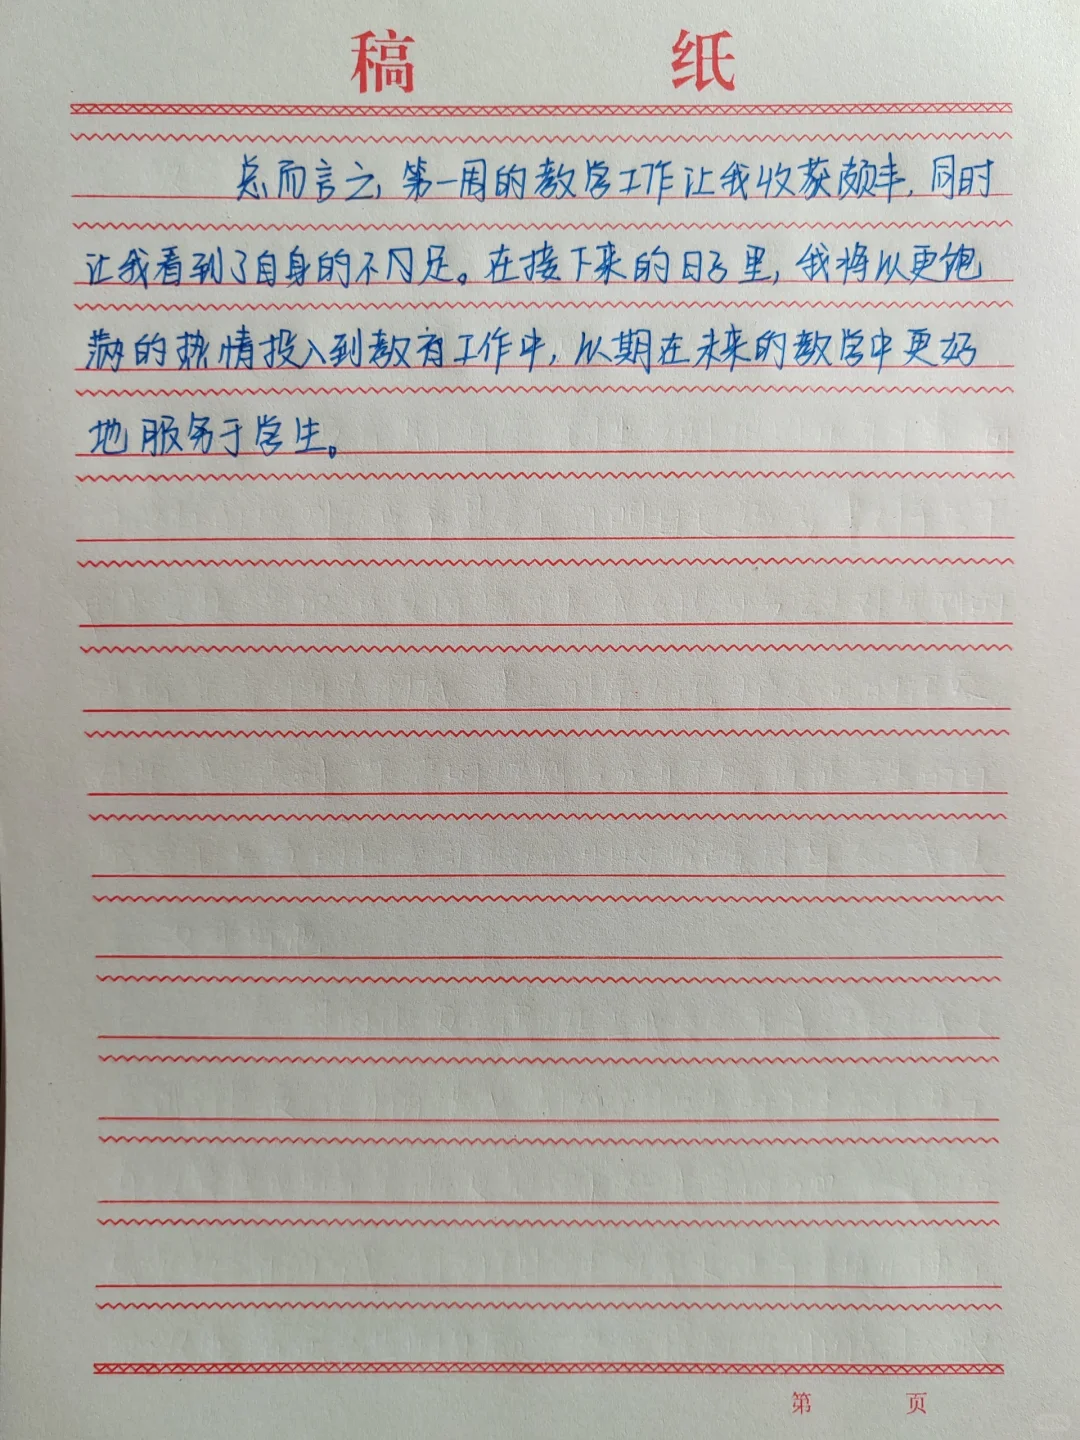 稿 纸
总而言之，第一周的教学工作让我收获颇丰，同时
让我看到了自身的不足。在接下来的日子里，我将以更饱
满的热情投入到教育工作中，以期在未来的教学中更好
地服务于学生。
第 页